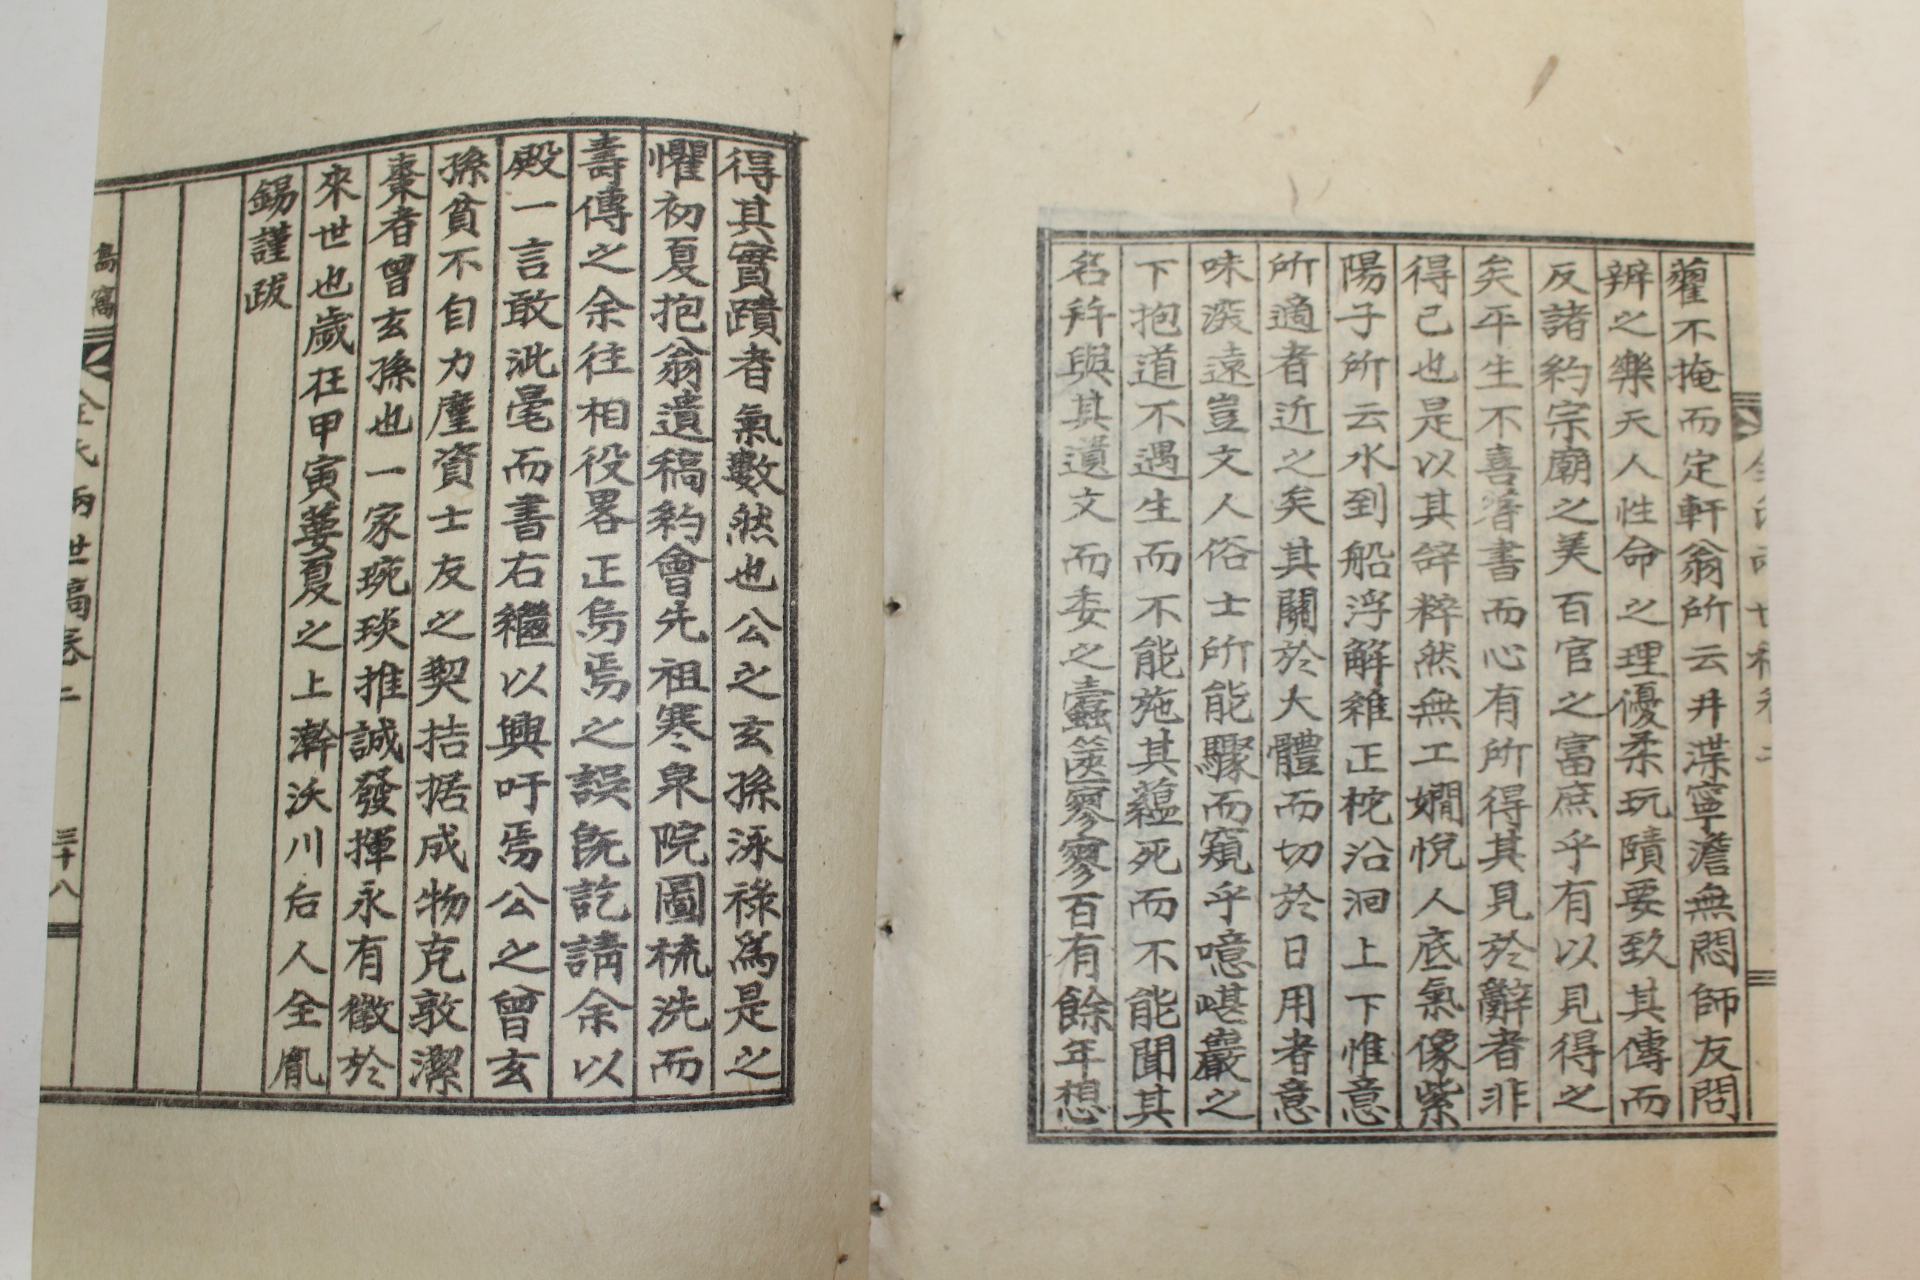 藿不掩而定軒翁所云井渫寧澹無悶師友問
辨之樂天人性命之理優柔玩賾要致其傳而
反諸約宗廟之美百官之富庶乎有以見得之
矣平生不喜著書而心有所得其見於辭者非
得已也是以其辞粹然無工嫺悅人底氣像紫
陽子所云水到船浮解維正柁沿洄上下惟意
所適者近之矣其關於大體而切於日用者意
味深遠豈文人俗士所能驟而窺乎噫嵁巖之
下抱道不遇生而不能施其蘊死而不能聞其
名并與其遺文而委之蠹篋寥寥百有餘年想
得其實蹟者氣數然也公之玄孫泳祿爲是之
懼初夏抱翁遺稿約會先祖寒泉院圖梳洗而
壽傳之余往相役畧正烏焉之誤旣訖請余以
殿一言敢泚毫而書右繼以興吁焉公之曾玄
孫貧不自力鏖資士友之契拮据成物克敦潔
棗者曾玄孫也一家琬琰推誠發揮永有徵於
來世也歲在甲寅蔞夏之上澣沃川后人全胤
錫謹跋
窩
全氏兩世稿卷二
三十八